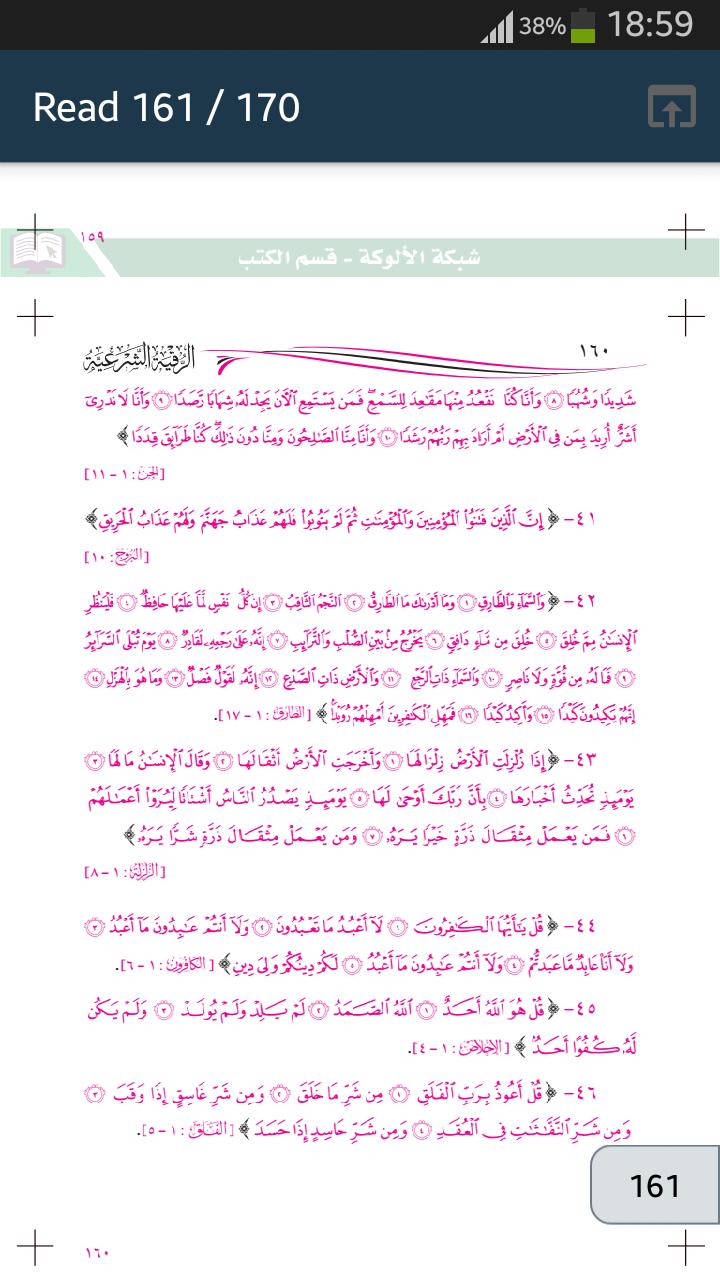 38% 18:59
Read 161 / 170
١٥٩
شبكة الألوكة - قسم الكتب
الرقية الشرعية ١٦٠
شَدِيدًا وَشُهُبًا ٨ وَأَنَّا كُنَّا نَقْعُدُ مِنْهَا مَقَاعِدَ لِلسَّمْعِ فَمَن يَسْتَمِعِ الْآنَ يَجِدْ لَهُ شِهَابًا رَّصَدًا ٩ وَأَنَّا لَا نَدْرِي
أَشَرٌّ أُرِيدَ بِمَن فِي الْأَرْضِ أَمْ أَرَادَ بِهِمْ رَبُّهُمْ رَشَدًا ١٠ وَأَنَّا مِنَّا الصَّالِحُونَ وَمِنَّا دُونَ ذَٰلِكَ كُنَّا طَرَائِقَ قِدَدًا ﴾
[الجن: ١ - ١١]
٤١- ﴿ إِنَّ الَّذِينَ فَتَنُوا الْمُؤْمِنِينَ وَالْمُؤْمِنَاتِ ثُمَّ لَمْ يَتُوبُوا فَلَهُمْ عَذَابُ جَهَنَّمَ وَلَهُمْ عَذَابُ الْحَرِيقِ ﴾
[البروج: ١٠]
٤٢- ﴿ وَالسَّمَاءِ وَالطَّارِقِ ١ وَمَا أَدْرَاكَ مَا الطَّارِقُ ٢ النَّجْمُ الثَّاقِبُ ٣ إِن كُلُّ نَفْسٍ لَّمَّا عَلَيْهَا حَافِظٌ ٤ فَلْيَنظُرِ
الْإِنسَانُ مِمَّ خُلِقَ ٥ خُلِقَ مِن مَّاءٍ دَافِقٍ ٦ يَخْرُجُ مِن بَيْنِ الصُّلْبِ وَالتَّرَائِبِ ٧ إِنَّهُ عَلَىٰ رَجْعِهِ لَقَادِرٌ ٨ يَوْمَ تُبْلَى السَّرَائِرُ
٩ فَمَا لَهُ مِن قُوَّةٍ وَلَا نَاصِرٍ ١٠ وَالسَّمَاءِ ذَاتِ الرَّجْعِ ١١ وَالْأَرْضِ ذَاتِ الصَّدْعِ ١٢ إِنَّهُ لَقَوْلٌ فَصْلٌ ١٣ وَمَا هُوَ بِالْهَزْلِ ١٤
إِنَّهُمْ يَكِيدُونَ كَيْدًا ١٥ وَأَكِيدُ كَيْدًا ١٦ فَمَهِّلِ الْكَافِرِينَ أَمْهِلْهُمْ رُوَيْدًا ﴾ [الطارق: ١ - ١٧].
٤٣- ﴿ إِذَا زُلْزِلَتِ الْأَرْضُ زِلْزَالَهَا ١ وَأَخْرَجَتِ الْأَرْضُ أَثْقَالَهَا ٢ وَقَالَ الْإِنسَانُ مَا لَهَا ٣
يَوْمَئِذٍ تُحَدِّثُ أَخْبَارَهَا ٤ بِأَنَّ رَبَّكَ أَوْحَىٰ لَهَا ٥ يَوْمَئِذٍ يَصْدُرُ النَّاسُ أَشْتَاتًا لِّيُرَوْا أَعْمَالَهُمْ
٦ فَمَن يَعْمَلْ مِثْقَالَ ذَرَّةٍ خَيْرًا يَرَهُ ٧ وَمَن يَعْمَلْ مِثْقَالَ ذَرَّةٍ شَرًّا يَرَهُ ﴾
[الزلزلة: ١ - ٨]
٤٤- ﴿ قُلْ يَا أَيُّهَا الْكَافِرُونَ ١ لَا أَعْبُدُ مَا تَعْبُدُونَ ٢ وَلَا أَنتُمْ عَابِدُونَ مَا أَعْبُدُ ٣
وَلَا أَنَا عَابِدٌ مَّا عَبَدتُّمْ ٤ وَلَا أَنتُمْ عَابِدُونَ مَا أَعْبُدُ ٥ لَكُمْ دِينُكُمْ وَلِيَ دِينِ ﴾ [الكافرون: ١ - ٦].
٤٥- ﴿ قُلْ هُوَ اللَّهُ أَحَدٌ ١ اللَّهُ الصَّمَدُ ٢ لَمْ يَلِدْ وَلَمْ يُولَدْ ٣ وَلَمْ يَكُن
لَّهُ كُفُوًا أَحَدٌ ﴾ [الإخلاص: ١ - ٤].
٤٦- ﴿ قُلْ أَعُوذُ بِرَبِّ الْفَلَقِ ١ مِن شَرِّ مَا خَلَقَ ٢ وَمِن شَرِّ غَاسِقٍ إِذَا وَقَبَ ٣
وَمِن شَرِّ النَّفَّاثَاتِ فِي الْعُقَدِ ٤ وَمِن شَرِّ حَاسِدٍ إِذَا حَسَدَ ﴾ [الفلق: ١ - ٥].
161
١٦٠